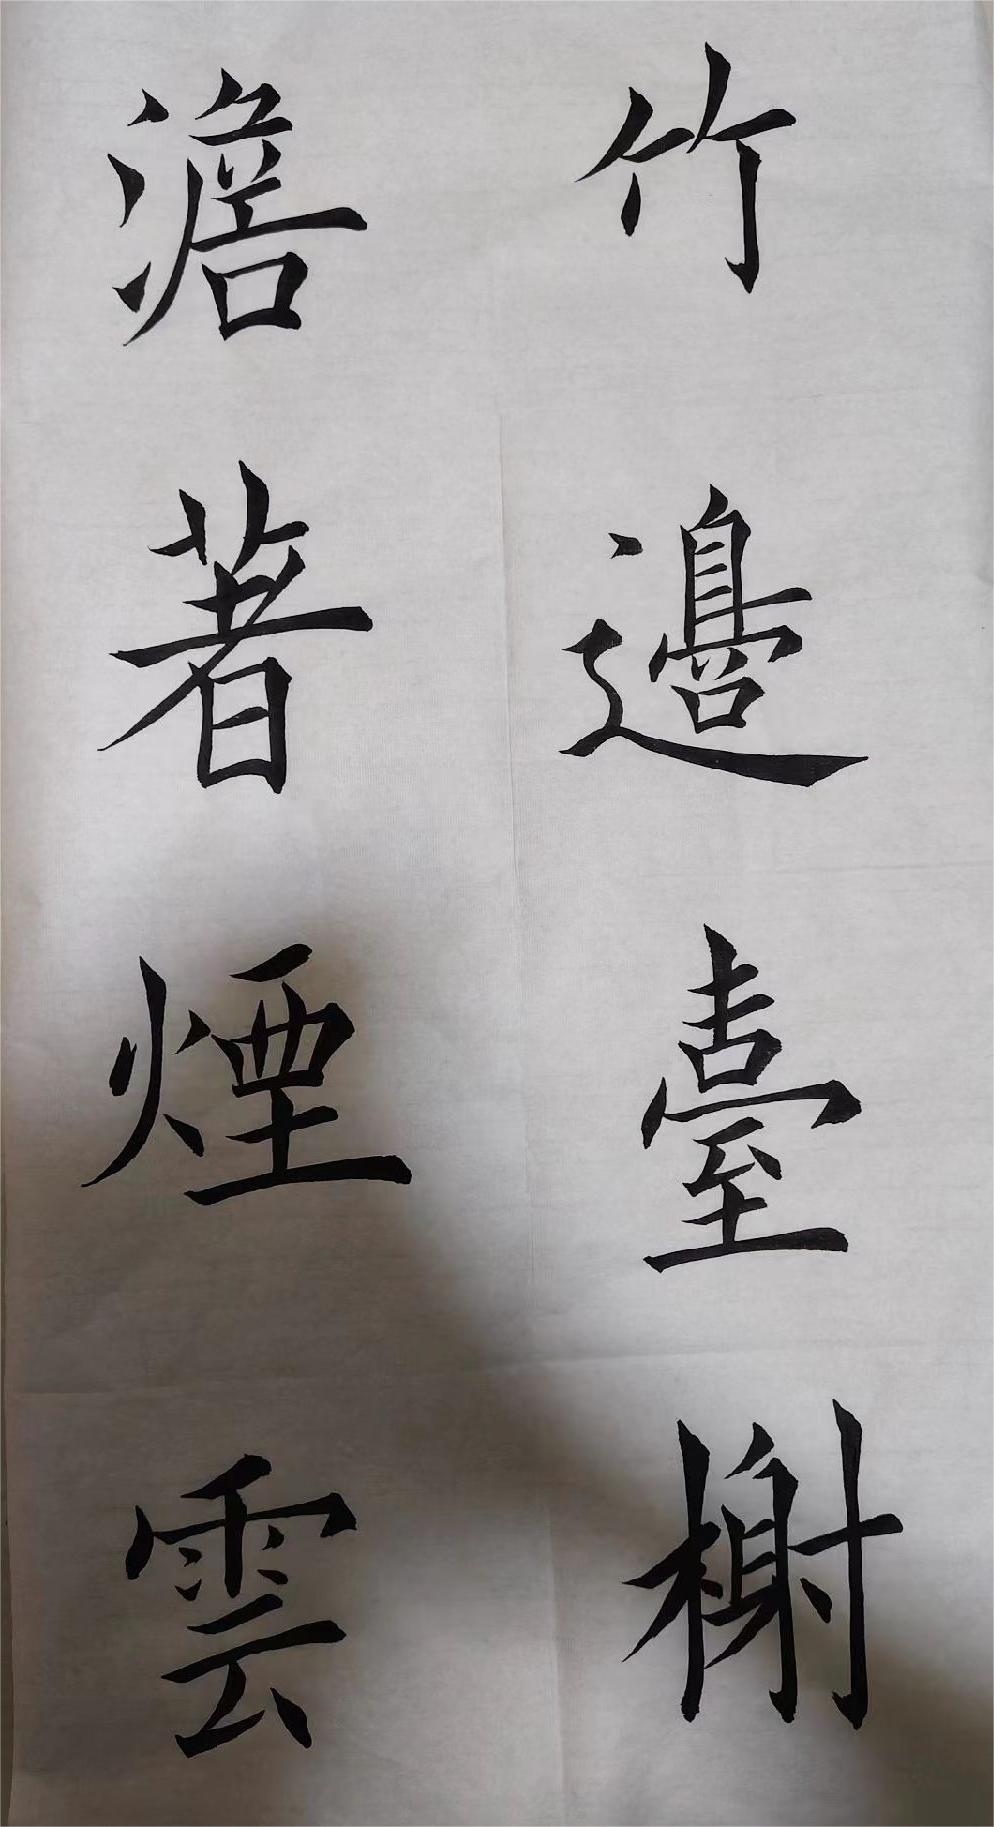 竹邊臺榭
澹著煙雲